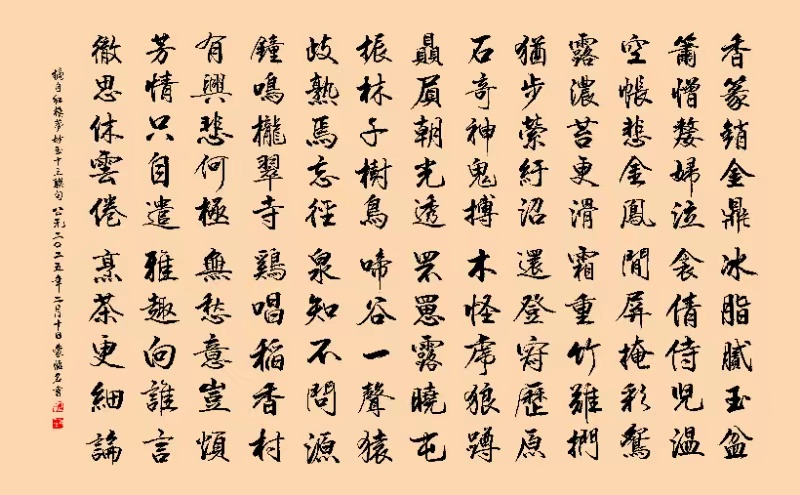 香篆銷金鼎冰脂膩玉盆
簫憎嫠婦泣衾倩侍児溫
空帳悲金鳳閒屏掩彩鴛
露濃苔更滑霜重竹難捫
猶步縈紆沼還登寂歷原
石奇神鬼搏木怪虎狼蹲
贔屓朝光透罘罳露曉屯
振林子樹鳥啼谷一聲猿
歧熟焉忘徑泉知不問源
鐘鳴櫳翠寺鷄唱稻香村
有興悲何極無愁意豈煩
芳情只自遣雅趣向誰言
徹思休雲倦烹茶更細論
摘自紅樓夢妙玉十三聯句 公元二〇二五年二月十日